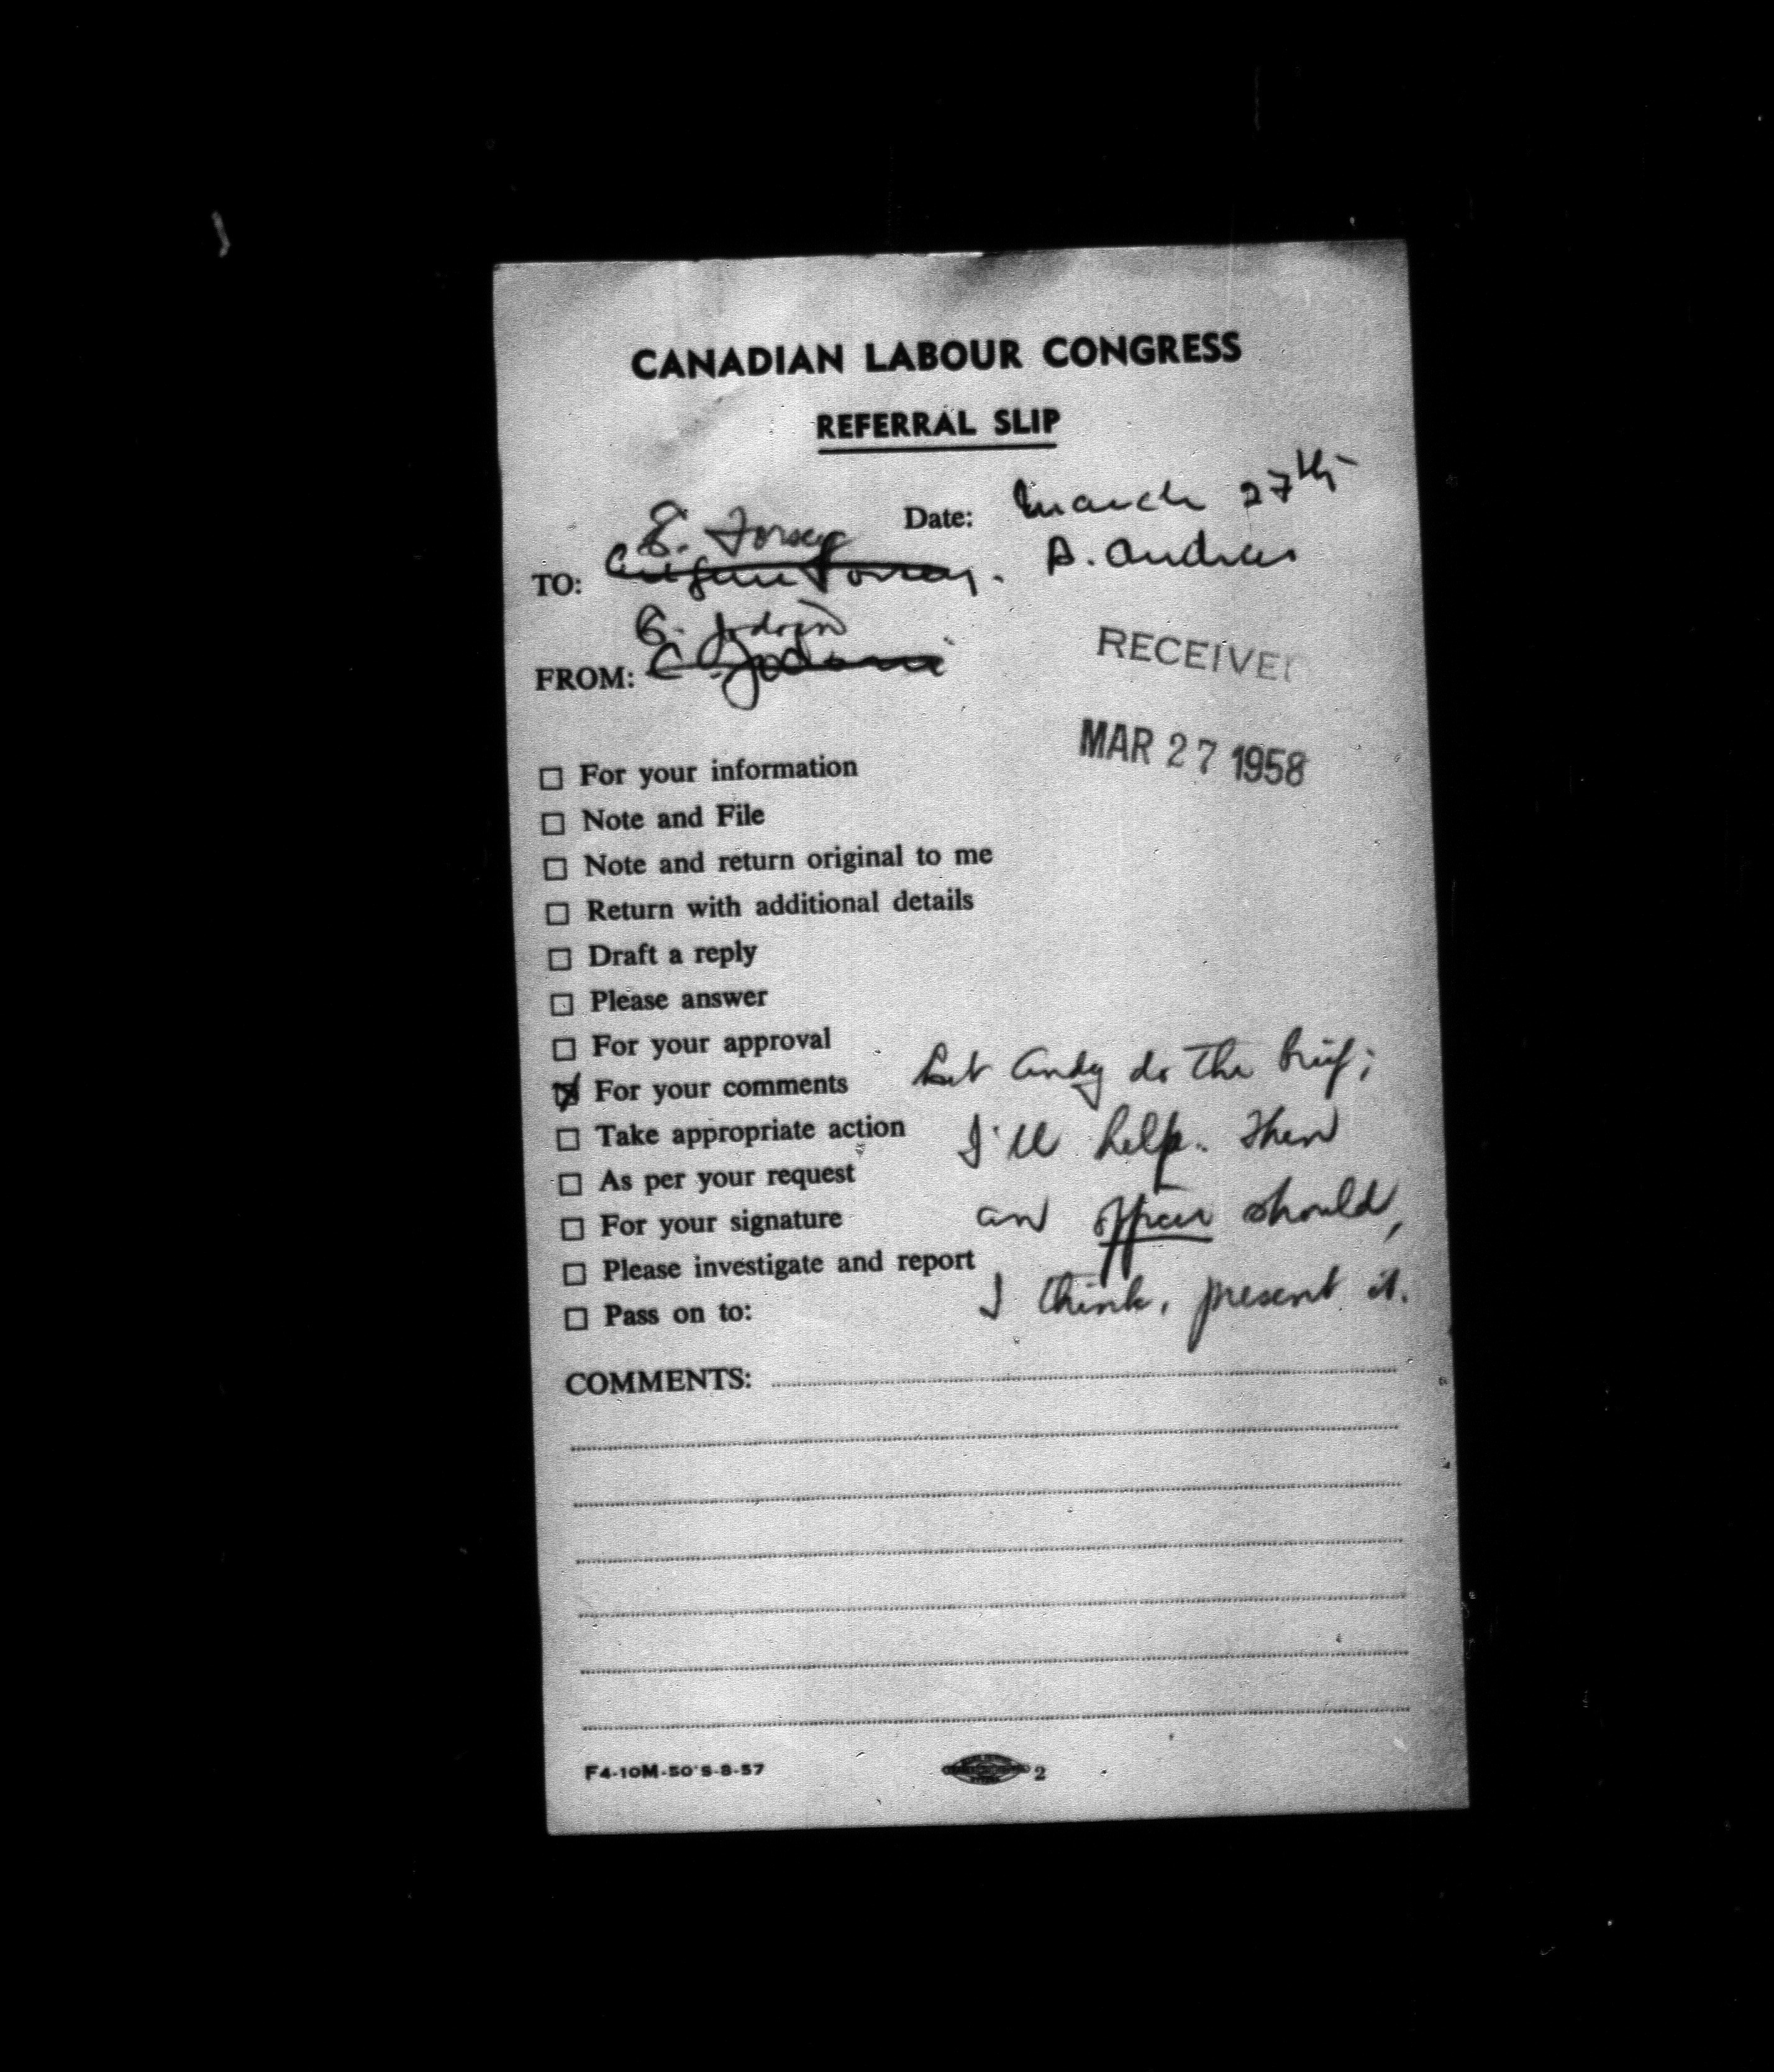 CANADIAN LABOUR CONGRESS
REFERRAL SLIP
Date: March 27th
E. Forsey
A. Andras
TO: Eugene Forsey.
G. Jodoin
FROM: C Jodoin
RECEIVED
MAR 27 1958
☐ For your information
☐ Note and File
☐ Note and return original to me
☐ Return with additional details
☐ Draft a reply
☐ Please answer
☐ For your approval
☒ For your comments
☐ Take appropriate action
☐ As per your request
☐ For your signature
☐ Please investigate and report
☐ Pass on to:
Let Andy do the brief;
I'll help. Then
an officer should,
I think, present it.
COMMENTS:
F4-10M-50'S-8-57
2